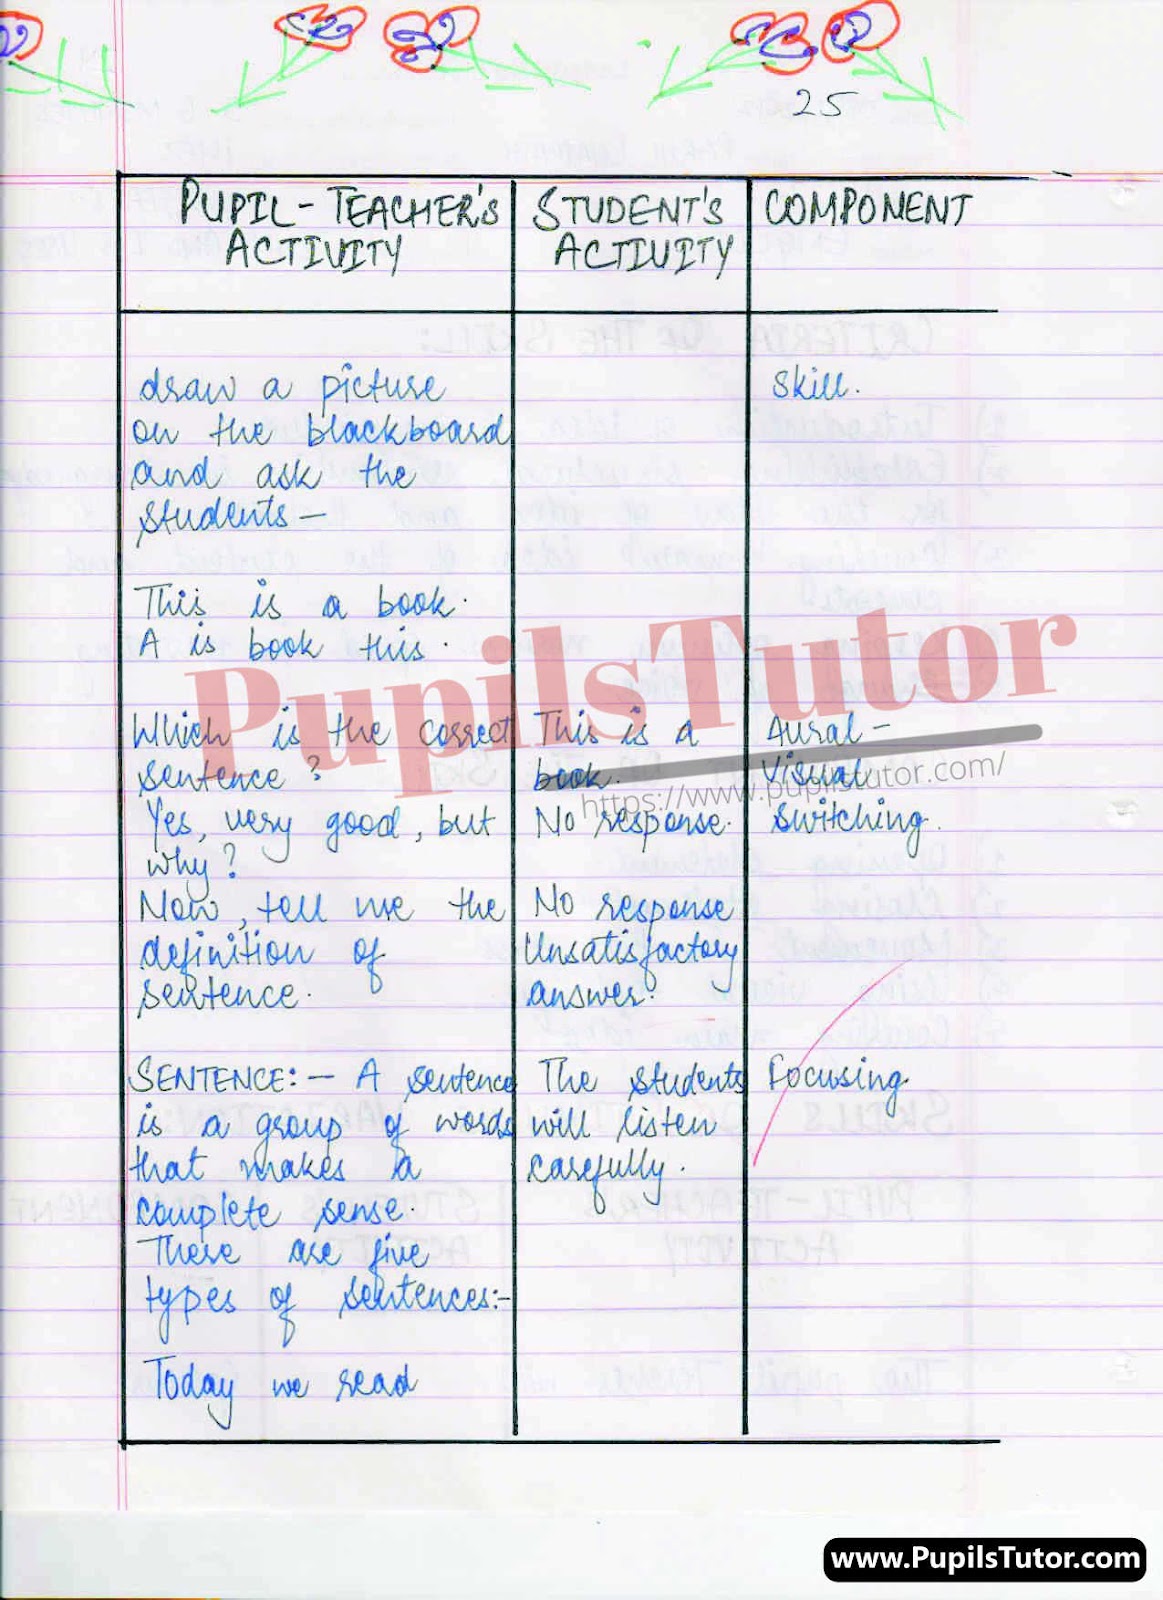 25
PUPIL-TEACHER'S
ACTIVITY
STUDENT'S
ACTIVITY
COMPONENT
draw a picture
on the blackboard
and ask the
students—
Skill.
This is a book.
A is book this.
Which is the correct
sentence?
Yes, very good, but
why?
This is a
book.
No response.
Aural-
Visual
switching.
Now, tell me the
definition of
sentence.
No response
Unsatisfactory
answer.
SENTENCE:— A sentence
is a group of words
that makes a
complete sense.
There are five
types of sentences:-
The students
will listen
carefully.
Focusing
Today we read
PupilsTutor
https://www.pupilstutor.com/
www.PupilsTutor.com